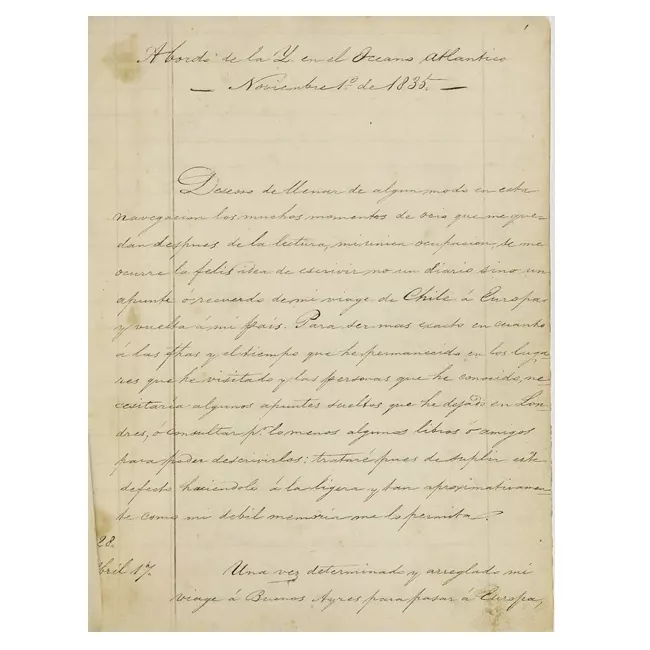 Abordo de la Y. en el Oceano Atlantico
— Noviembre 1º de 1835. —
Deseoso de llenar de algun modo en esta
navegacion los muchos momentos de ocio que me que-
dan despues de la lectura, mi unica ocupacion, se me
ocurre la felis idea de escrivir no un diario sino un
apunte ó recuerdo de mi viage de Chile á Europa
y vuelta á mi pais. Para ser mas exacto en cuanto
á las fhas y el tiempo que he permanecido en los luga-
res que he visitado y las personas que he conocido, ne-
cesitaria algunos apuntes sueltos que he dejado en Lon-
dres, ó consultar pr. lo menos algunos libros ó amigos
para poder descrivirlos: trataré pues de suplir este
defecto haciendolo á la ligera y tan aproximativamen-
te como mi debil memoria me lo permita.
28.
bril 17.
Una vez determinado y arreglado mi
viage á Buenos Ayres para pasar á Europa,